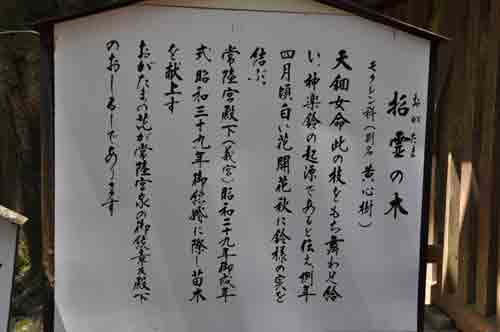 おがたま
招霊の木
モクレン科(別名 黄心樹)
天鈿女命此の枝をもち舞わせ給
い、神楽鈴の起源であると伝え例年
四月頃白い花開花秋に鈴様の実を
結ぶ
常陸宮殿下(義宮)昭和二十九年御成年
式 昭和三十九年御結婚に際し苗木
を献上す
おがたまの花が常陸宮家の御紋章及殿下
のおしるしであります